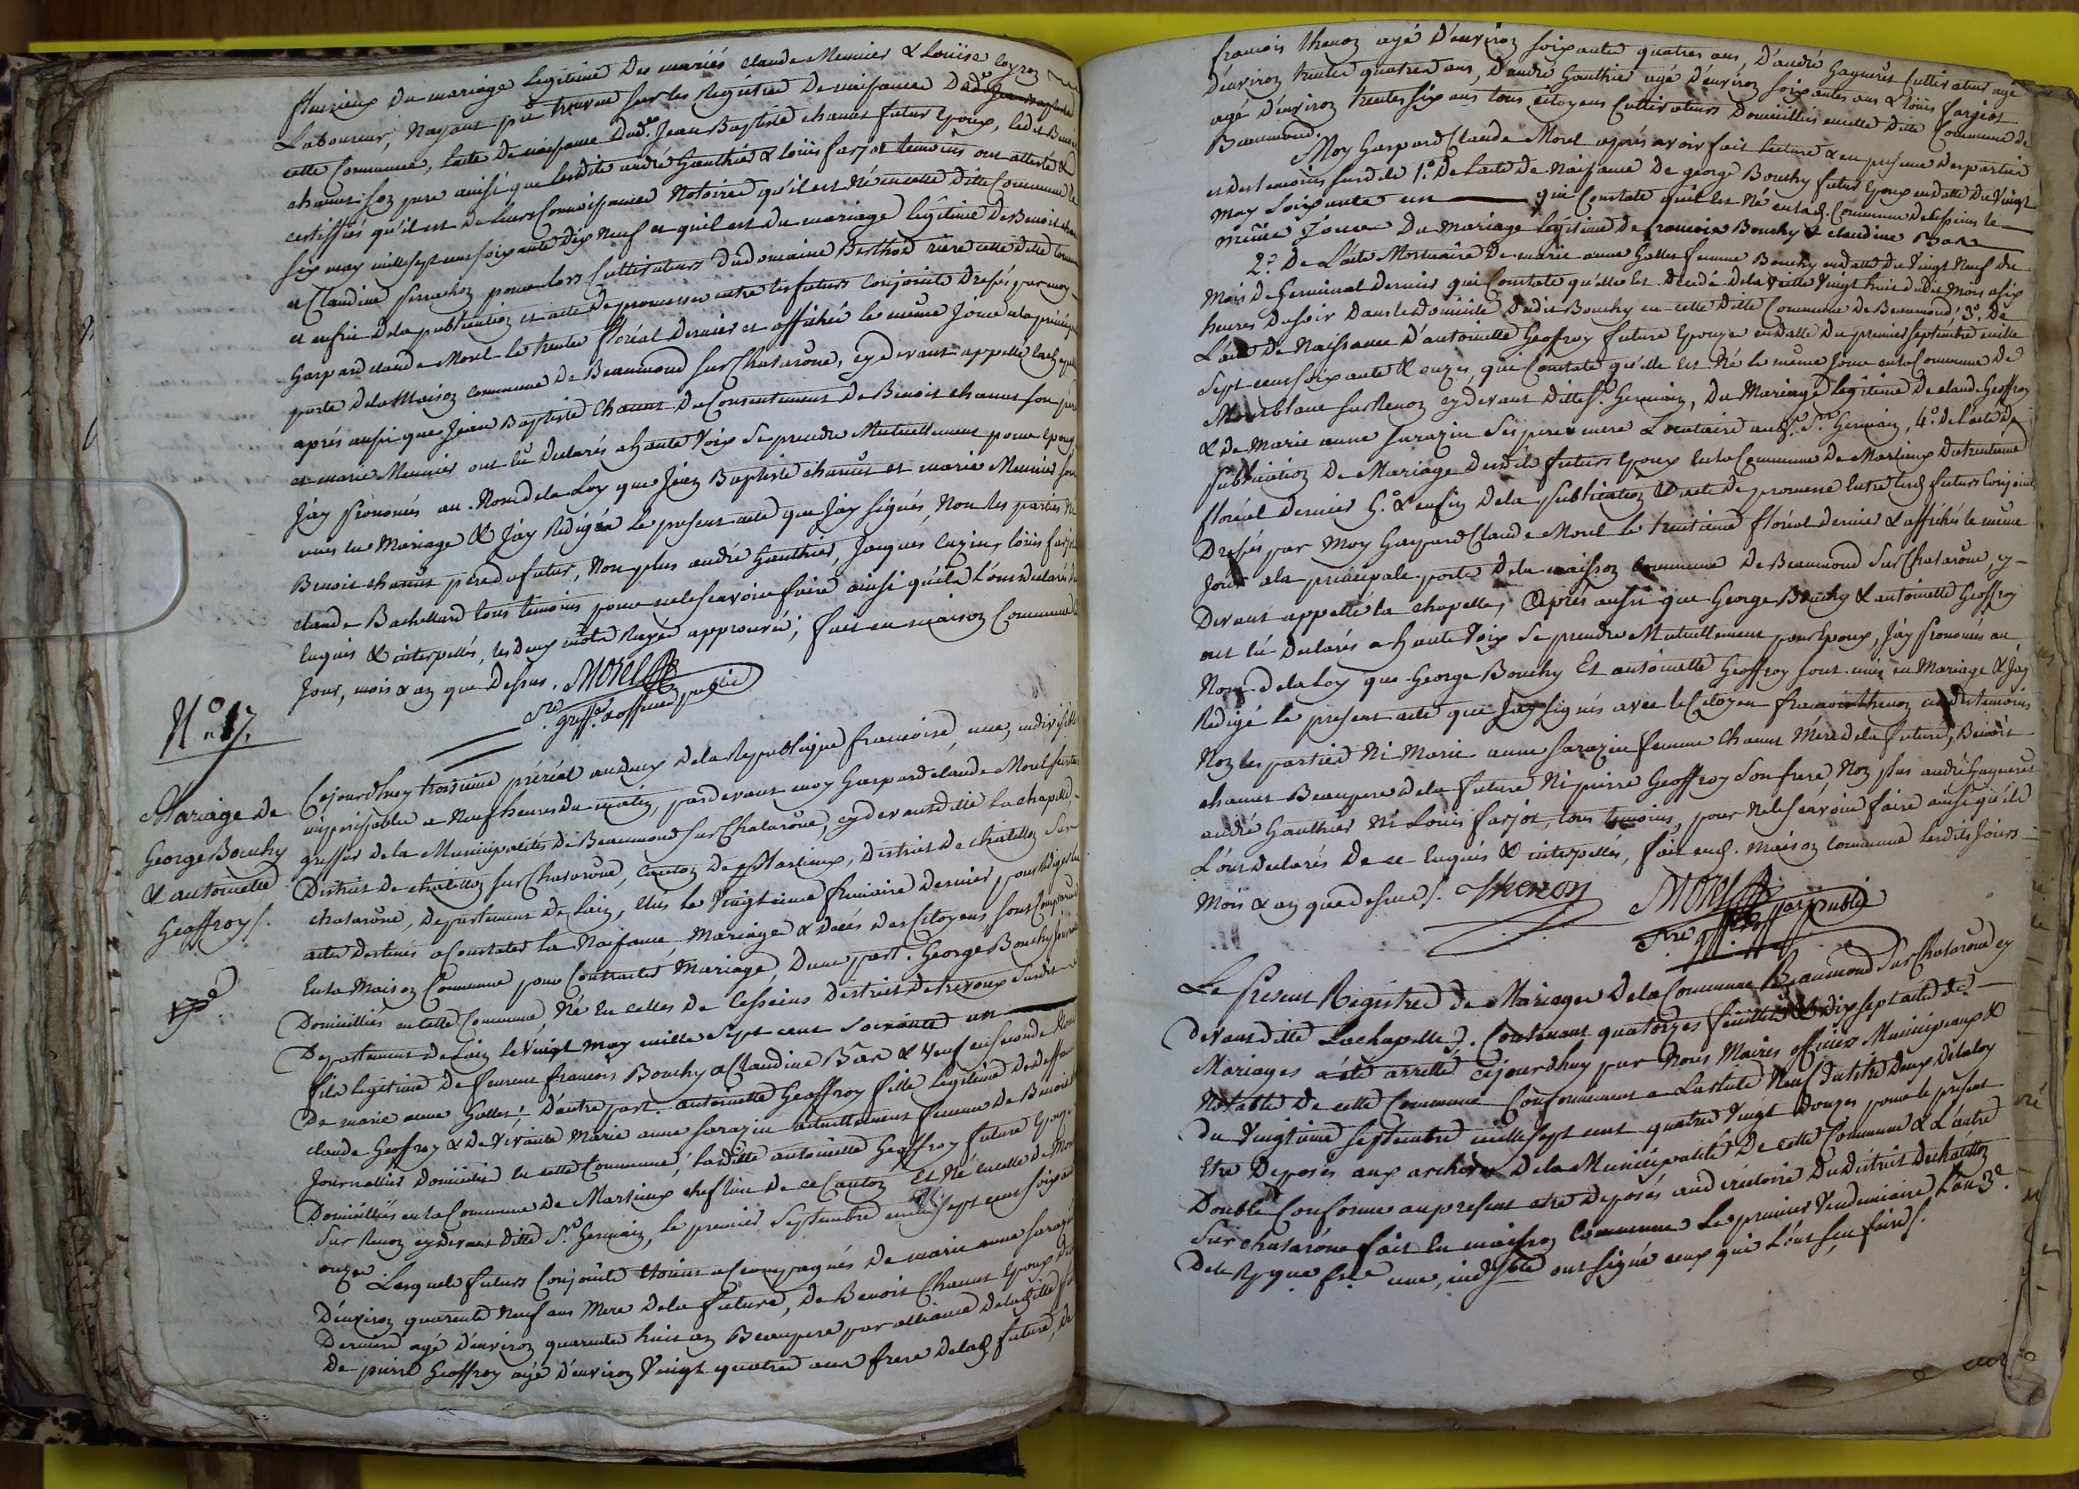 fleurieux du mariage legitime des mariés claude Meunier & Louise
Laboureur, Nayant pû trouver sur les Régistres De naissance Dud.
cette Commune, lacte De naissance Dud. Jean Baptiste chanut futur Epoux, ledit Benoit
chanut son pere ainsi que lesdits andré Gauthié & loüis farjot temoins ont attesté &
certiffiés qu'il est De leurs Connoissances Notoires qu'il est Né en cette ditte Commune le
six may mille sept cent soixante Dix Neuf et quil est du mariage legitime De Benoit
et Claudine pour lors Cultivateurs du domaine Berthod riere cette ditte Commune
et enfin De la publication et acte de promesse entre les futurs conjoints Dressés par moy
Gaspard claude Morel le trente floréal Dernier et affiché le même jour a la principale
porte De la Maison commune De Beaumond sur Chalarône, cy devant appellé
aprés aussi que Jean Baptiste Chanut Du Consentement De Benoit chanut son pere
et marie Meunier ont êu Declarés a haute Voix Se prendre Mutuellement pour Epoux
J'ay prônoncés au Nom de la Loy que Jean Baptiste chanut et marie Meunier sont
unis en Mariage & J'ay Redigér le present acte que J'ay signés, Non les parties Ni
Benoit chanut pere du futur, Non plus andré Gauthier, Jacques Cuzin, loüis farjot
claude Bachellard tous temoins pour ne le scavoir faire ainsi qu'ils L'ont declarés
Enquis & interpellés, les deux mots Rayés approuvé; fait en maison Commune
Jour, mois & an que Dessus. MOREL
Sre. greff. & officier public
N.º 17.
Mariage de
George Bouchy
& antoinette
Geoffroy /.
Cejourdhuy troisieme préréal an deux De la Republique francoise, une, indivisible
impérissable a Neuf heures du matin, pardevant moy Gaspard claude Morel
greffier de la Municipalités De Beaumond sur Chalarône, cy devant ditte La chapelle,
District de chatillon sur Chalarône, canton de Marlieux, District De chatillon sur
chalarône, Departement De Lain, Elus le Vingtieme frimaire Dernier pour Rédiger les
actes destinés a Constater la Naissance, Mariage & décés des Citoyens sont comparus
En la Maison Commune pour Contracter Mariage, D'une part. George Bouchy
Domicilliés en cette Commune, Né En celles De Cesseins District De trevoux susdit
Departement de Lain le Vingt May mille Sept cent Soixante un
fils legitime De feu francois Bouchy & Claudine Bar & Veuf en seconde
De marie anne Gallet. D'autre part. antoinette Geoffroy fille legitime de deffunt
claude Geoffroy & De Vivante Marie anne Sarazin actuellement femme De Benoit
Journallier Domicilié en cette Commune, Laditte antoinette Geoffroy future Epouse
Domicilliés en la Commune De Marlieux chef lieu De ce Canton Et Né en celle de Mont
Sur Renon cy devant ditte St. Germain, le premier Septembre mille sept cent soixante
onze. Lesquels futurs Conjoints Etoient accompagnés De marie anne Sarazin
D'environ quarente Neuf ans Mere De la future, De Benoit Chanut Epoux
Derniere agé d'environ quarente huit an Beaupere par alliance de la ditte
De pierre Geoffroy agé d'environ Vingt quatres ans frere De lad. future, De
francois thenon agé D'environ soixante quatres ans, D'andré Gagneurs Cultivateur agé
d'environ trente quatres ans, D'andré Gauthie agé d'environ soixantes ans & loüis farjot
agé d'environ trente six ans tous Citoyens Cultivateurs Domicilliés en cette Ditte Commune de
Beaumond. Moy Gaspard Claude Morel aprés avoir fait lecture & en presence des parties
et des temoins susd. de 1.º De L'acte De Naissance De george Bouchy futur Epoux en datte Du Vingt
may Soixante un qui Constate quil Est Né en lad. Commune de Cesseins le
même Jour Du Mariage Légitime De francois Bouchy & claudine Bar
2.º De L'acte Mortuaire De marie anne Gallet femme Bouchy en datte Du Vingt Neuf du
Mois De Germinal Dernier qui Constate qu'elle est Decedé De la Veille Vingt huit dudit Mois a six
heures Du Soir Dans le Domicile Dudit Bouchy en cette ditte Commune De Beaumond, 3.º De
L'acte De Naissance D'antoinette Geoffroy future Epouse en datte Du premier Septembre mille
Sept cent Soixante & onze, qui Constate qu'elle Est Né le même Jour en la Commune De
Montblanc sur Renon cy devant Ditte St. Germain, Du Mariage legitime De claude Geoffroy
& De Marie anne Sarazin Ses pere & mere Locataire aud. St. Germain, 4.º de L'acte De
Publication De Mariage Desdits futurs Epoux En la Commune De Marlieux Du trentieme
floréal Dernier 5.º & enfin De la publication & acte De promesse Entre lesd. futurs Conjoints
Dressés par Moy Gaspard Claude Morel le trentieme floréal Dernier & affiché le même
Jour a la principale porte De la maison Commune De Beaumond sur Chalarône cy
Devant appellé la chapelle, aprés aussi que George Bouchy & antoinette Geoffroy
ont êu Declarés a haute Voix Se prendre Mutuellement pour Epoux, J'ay prononcés au
Nom De la Loy que George Bouchy Et antoinette Geoffroy sont unis en Mariage & J'ay
Redigé le present acte que J'ay signés avec le Citoyen francois thenon un des temoins
Non les parties Ni Marie anne Sarazin femme Chanut Mere De la future, Benoit
chanut Beaupere De la future Ni pierre Geoffroy Son frere, Non plus andré Gagneurs
andré Gauthier Ni Louis farjot, tous temoins, pour ne le scavoir faire ainsi qu'ils
L'ont declarés De ce Enquis & interpellés, fait en d. maison commune lesdits Jours
Mois & an que dessus /. Thenon MOREL
Sre. greff. off. public
Le present Régistre de Mariages De la Commune Beaumond Sur Chalarône cy
devant ditte Lachapelle. Contenant quatorzes feuillets & dix sept actes de
Mariages a été arretté Cejourdhuy par Nous Maires officiers Municipaux &
Notable De cette Commune Conformement a L'article Neuf du titre Deux De la loy
Du Vingtieme Septembre mille sept cent quatre Vingt Douzes pour le présent
Etre Deposés aux archives De la Municipalité De cette Commune & L'autre
Double Conforme au present etre Deposés au directoire Du District De chatillon
Sur chalarône fait En maison Commune Le premier Vendemiaire L'an 3.e
De la Rep.que fr.se une, indivisible ont signé ceux qui L'ont sçu faire /.